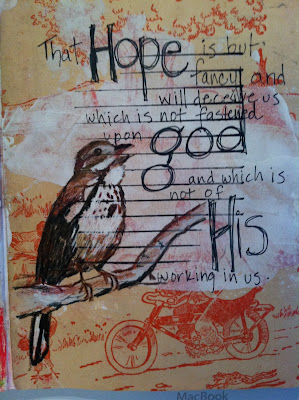 That Hope is but
fancy and
will deceive us
which is not fastened
upon god
and which is
not of
His
working in us.
MacBook